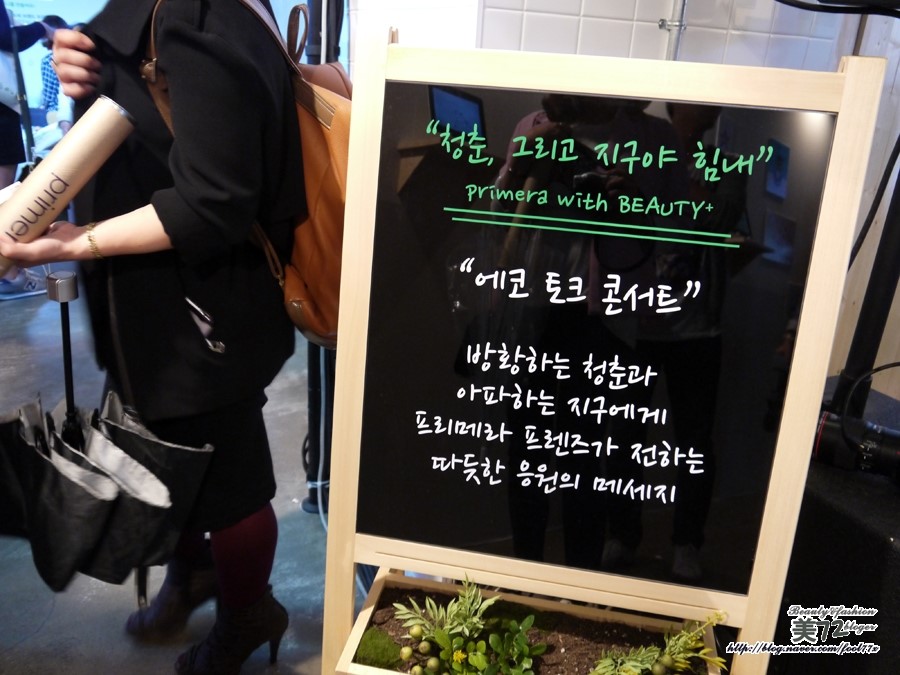 “청춘, 그리고 지구야 힘내”
primera with BEAUTY+
“에코 토크 콘서트”
방황하는 청춘과
아파하는 지구에게
프리메라 프렌즈가 전하는
따듯한 응원의 메세지
primer
Beauty&fashion
美72 blogger